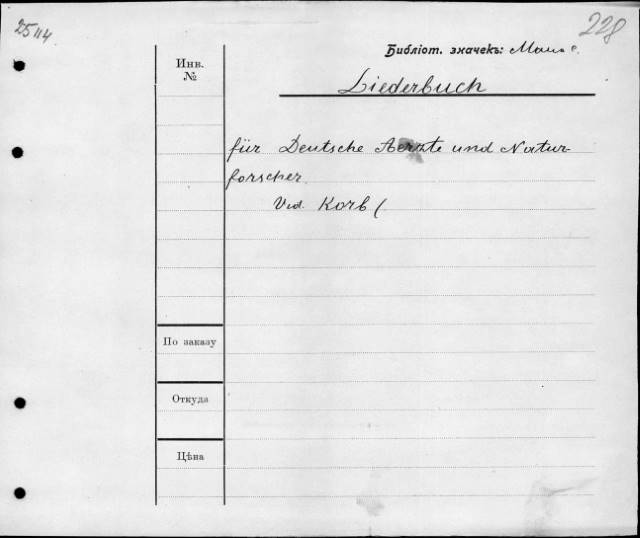 25114
228
Библіот. значекъ:
Инв.
№
Liederbuch
für Deutsche Aerzte und Natur-
forscher.
Vid. Korb (
По заказу
Откуда
Цѣна